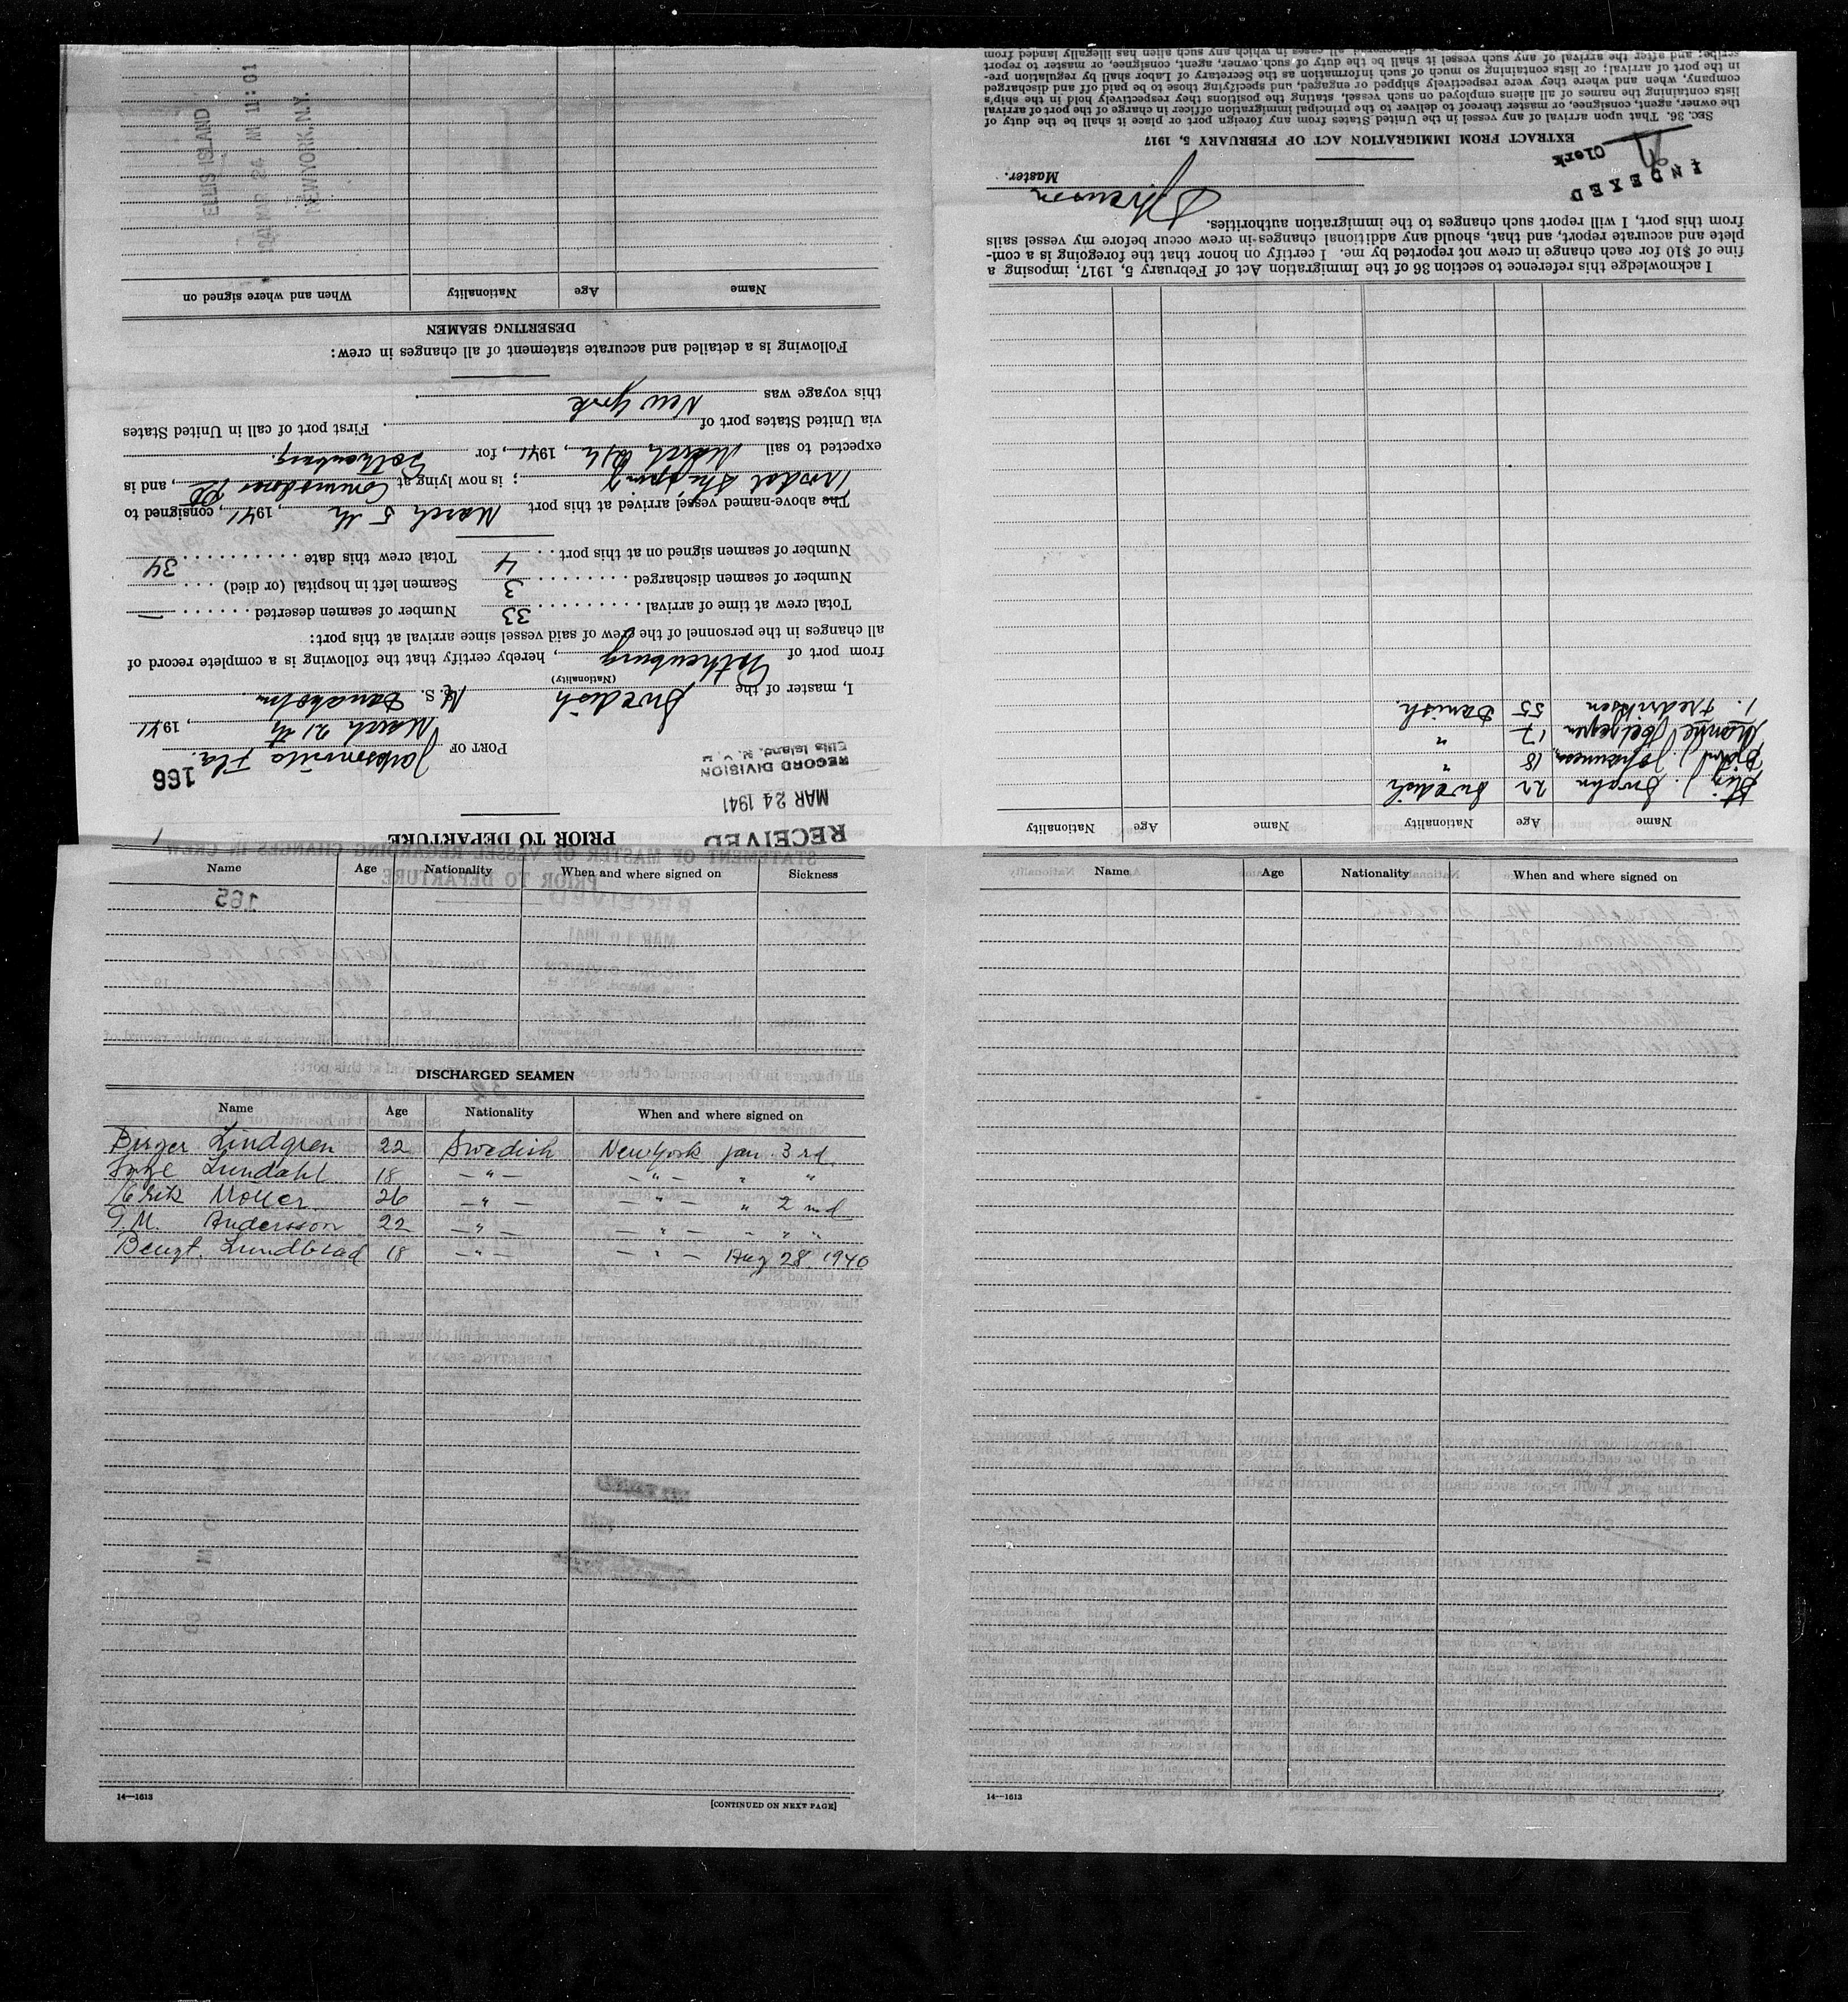 RECEIVED
MAR 24 1941
RECORD DIVISION
Ellis Island, N. Y. H.
PRIOR TO DEPARTURE
166
PORT OF Jacksonville Fla.
March 21 th, 1941
I, master of the Swedish M. S. Danaholm
(Nationality)
from port of Gothenburg, hereby certify that the following is a complete record of
all changes in the personnel of the crew of said vessel since arrival at this port:
Total crew at time of arrival 33 Number of seamen deserted —
Number of seamen discharged 3 Seamen left in hospital (or died)
Number of seamen signed on at this port 4 Total crew this date 34
The above-named vessel arrived at this port March 5 th, 1941, consigned to
Shipping; is now lying at Commodores, and is
expected to sail March, 1941, for Gothenburg.
via United States port of . First port of call in United States
this voyage was New York
Following is a detailed and accurate statement of all changes in crew:
DESERTING SEAMEN
Name Age Nationality When and where signed on
ELLIS ISLAND
1941 MAR 24 AM 11:01
NEW YORK, N.Y.
Name Age Nationality Name Age Nationality
Stig J. Svahn 22 Swedish
J. Johannesson 18 "
17 "
J. Fredriksen 55 Danish.
I acknowledge this reference to section 36 of the Immigration Act of February 5, 1917, imposing a
fine of $10 for each change in crew not reported by me. I certify on honor that the foregoing is a com-
plete and accurate report, and that, should any additional changes in crew occur before my vessel sails
from this port, I will report such changes to the immigration authorities.
Master.
INDEXED
Clerk
EXTRACT FROM IMMIGRATION ACT OF FEBRUARY 5, 1917
SEC. 36. That upon arrival of any vessel in the United States from any foreign port or place it shall be the duty of
the owner, agent, consignee, or master thereof to deliver to the principal immigration officer in charge of the port of arrival
lists containing the names of all aliens employed on such vessel, stating the positions they respectively hold in the ship's
company, when and where they were respectively shipped or engaged, and specifying those to be paid off and discharged
in the port of arrival; or lists containing so much of such information as the Secretary of Labor shall by regulation pre-
scribe; and after the arrival of any such vessel it shall be the duty of such owner, agent, consignee, or master to report
Name Age Nationality When and where signed on Sickness
165
DISCHARGED SEAMEN
Name Age Nationality When and where signed on
Birger Lindgren 22 Swedish New York Jan. 3 rd.
Lundahl 18 — " — — " — " "
Erik Moller 26 — " — — " — " 2 nd
G.M. Andersson 22 — " — — " — " " "
Bengt. Lundblad 18 — " — — " — Aug 28. 1940
14—1613
[CONTINUED ON NEXT PAGE]
Name Age Nationality When and where signed on
14—1613